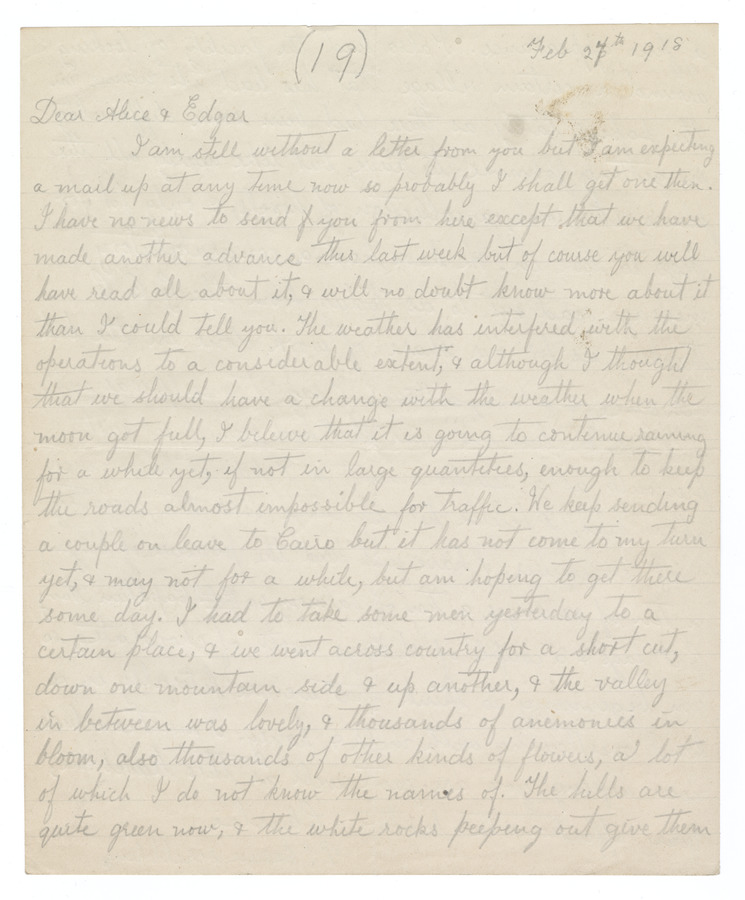 (19)
Feb 27th 1918
Dear Alice & Edgar
I am still without a letter from you but I am expecting
a mail up at any time now so probably I shall get one then.
I have no news to send you from here except that we have
made another advance this last week but of course you will
have read all about it, & will no doubt know more about it
than I could tell you. The weather has interfered, with the
operations to a considerable extent, & although I thought
that we should have a change with the weather when the
moon got full, I beleive that it is going to continue raining
for a while yet, if not in large quantities, enough to keep
the roads almost impossible for traffic. We keep sending
a couple on leave to Cairo but it has not come to my turn
yet, & may not for a while, but am hoping to get there
some day. I had to take some men yesterday to a
certain place, & we went across country for a short cut,
down one mountain side & up another, & the valley
in between was lovely, & thousands of anemonies in
bloom, also thousands of other kinds of flowers, a lot
of which I do not know the names of. The hills are
quite green now, & the white rocks peeping out give them